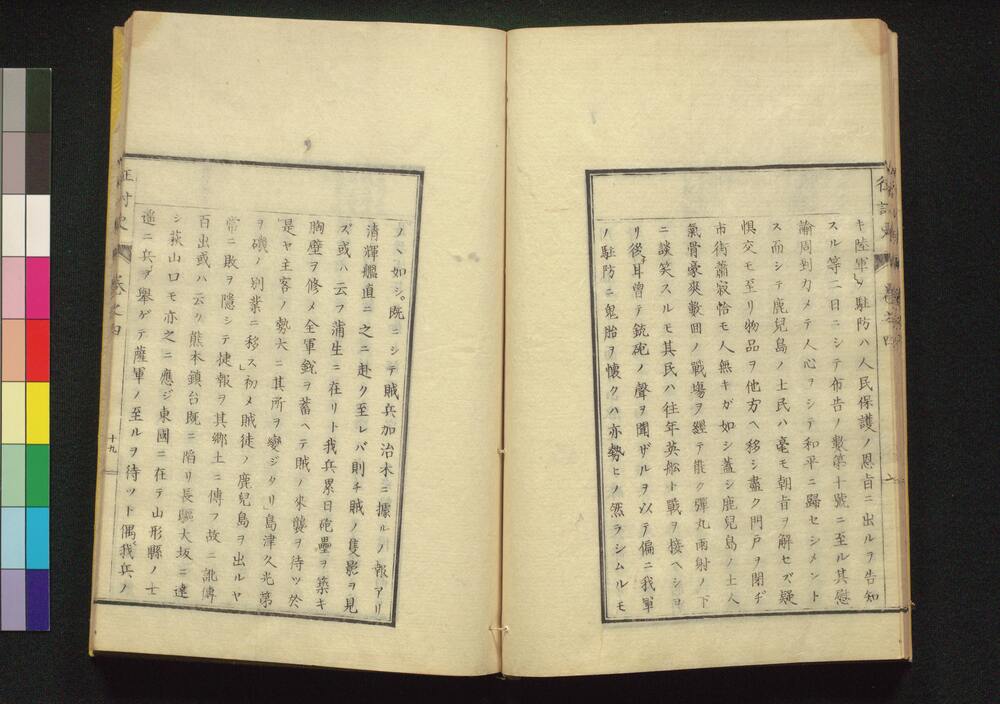 キ陸軍ノ駐防ハ人民保護ノ恩旨ニ出ルヲ告知
スル等二日ニシテ布告ノ數第十號ニ至ル其慰
諭周到力メテ人心ヲシテ和平ニ歸セシメント
ス而シテ鹿兒島ノ土民ハ毫モ朝旨ヲ解セズ疑
惧交モ至リ物品ヲ他方ヘ移シ盡ク門戸ヲ閉ヂ
市街蕭寂恰モ人無キガ如シ蓋シ鹿兒島ノ土人
氣骨豪爽數回ノ戰場ヲ經テ能ク彈丸雨射ノ下
ニ談笑スルモ其民ハ往年英舩ト戰ヲ接ヘシヨ
リ後チ耳曾テ銃砲ノ聲ヲ聞ザルヲ以テ偏ニ我軍
ノ駐防ニ鬼胎ヲ懷クハ亦勢ヒノ然ラシムルモ
ノヽ如シ。既ニシテ賊兵加治木ニ據ルノ報アリ
清輝艦直ニ之ニ赴ク至レバ則チ賊ノ隻影ヲ見
ズ或ハ云フ蒲生ニ在リト我兵累日砲壘ヲ築キ
胸壁ヲ修メ全軍鋭ヲ蓄ヘテ賊ノ來襲ヲ待ツ於
是ヤ主客ノ勢大ニ其所ヲ變ジタリ」島津久光第
ヲ磯ノ別業ニ移ス」初メ賊徒ノ鹿兒島ヲ出ルヤ
常ニ敗ヲ隱シテ捷報ヲ其郷土ニ傳フ故ニ訛傳
百出或ハ云ク熊本鎮台既ニ陷リ長驅大坂ニ達
シ萩山口モ亦之ニ應ジ東國ニ在テ山形縣ノ士
遥ニ兵ヲ舉ゲテ薩軍ノ至ルヲ待ツト偶〻我兵ノ
征討史
卷之四
十九